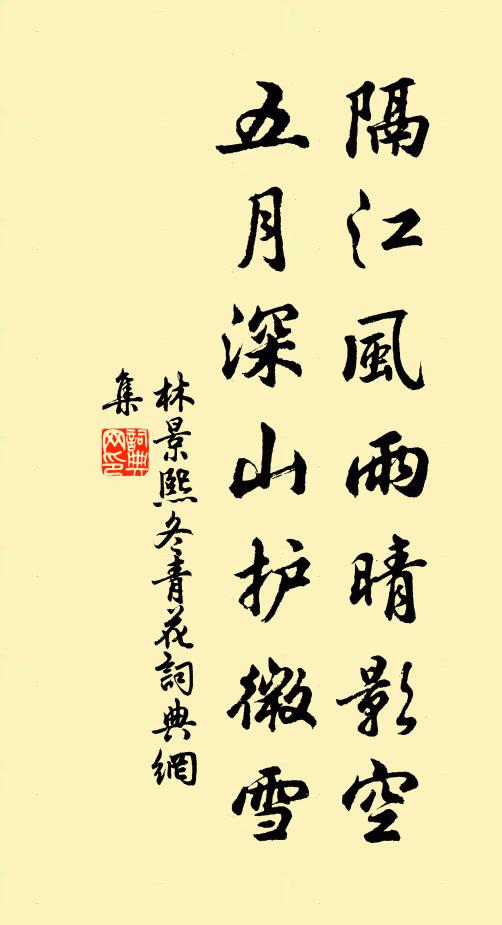 隔江風雨晴影空
五月深山护微雪
林景熙冬青花詞典網
集
詞典网印